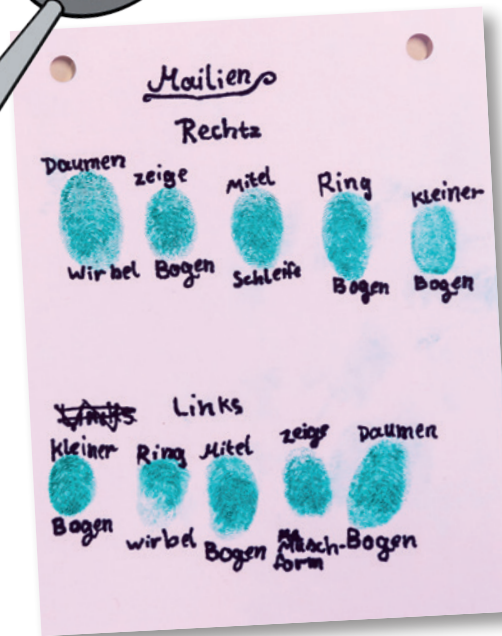 Mailien
Rechtz
Daumen zeige Mitel Ring Kleiner
Wirbel Bogen Schleife Bogen Bogen
Links
Kleiner Ring Mitel zeige Daumen
Bogen wirbel Bogen Misch- Bogen
form